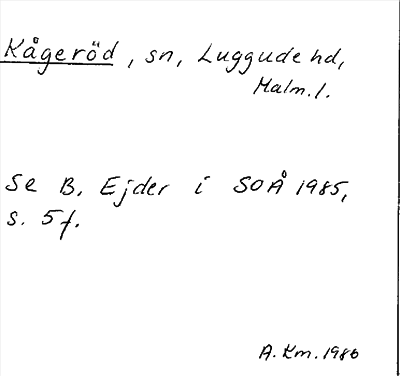 Kågeröd, sn, Luggude hd,
Malm. l.
Se B. Ejder i SOÅ 1985,
s. 5f.
A. Km. 1986